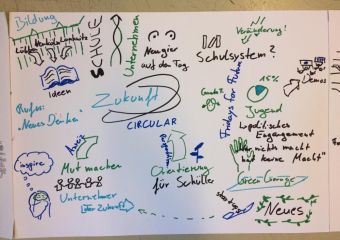 Bildung
SCHULE
Unternehmen
Neugier
auf den Tag
Veränderung!
Schulsystem?
ideen
Zukunft
CIRCULAR
Fridays for Future
15%
Jugend
Demos
politisches
Engagement
"Wer nichts macht
hat keine Macht"
Rufus:
"Neues Denken"
inspire
Mut machen
Unternehmer
der Zukunft
Orientierung
für Schüler
Green Garage
Neues